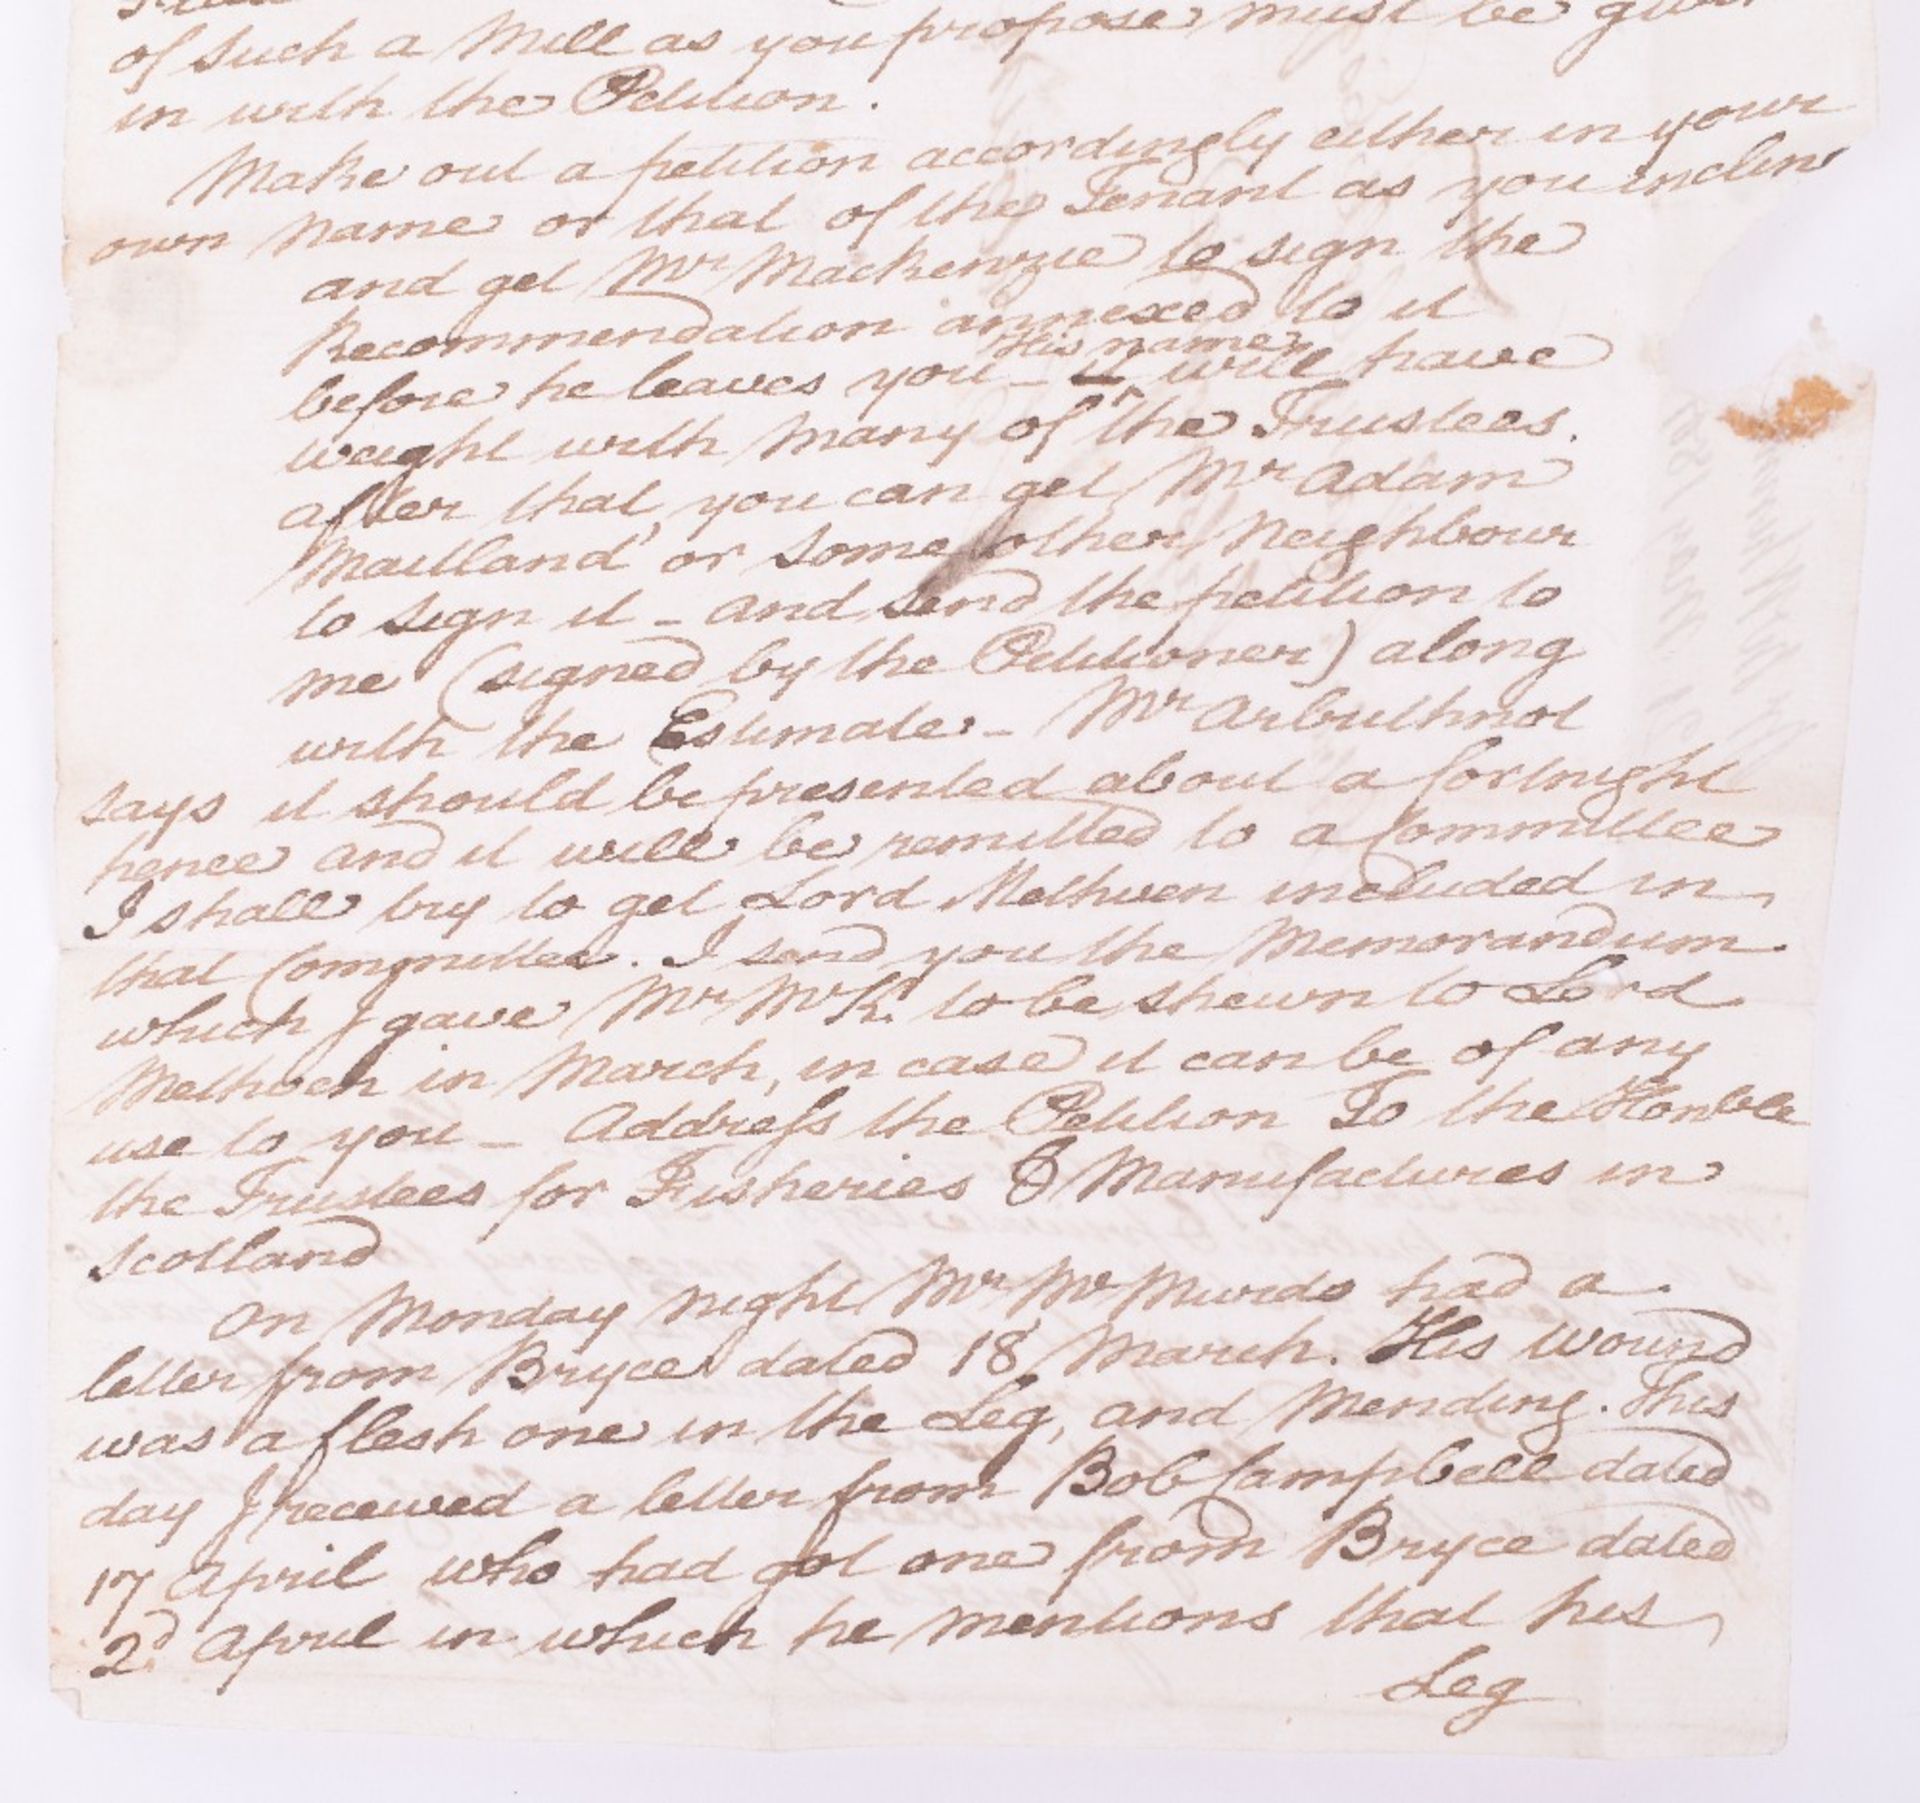 of such a Mill as you propose must be given
in with the Petition.
Make out a petition accordingly either in your
own name or that of the Tenant as you incline
and get Mr Mackenzie to sign the
Recommendation annexed to it
before he leaves you – it His name will have
weight with many of the Trustees.
after that, you can get Mr Adam
Maitland or some other Neighbour
to sign it – and send the petition to
me (signed by the Petitioner) along
with the Estimate – Mr Arbuthnot
says it should be presented about a fortnight
hence and it will be remitted to a Committee
I shall try to get Lord Methven included in
that Committee. I send you the Memorandum
which I gave Mr McK. to be shewn to Lord
Methven in March, in case it can be of any
use to you – Addreſs the Petition To the Honble
the Trustees for Fisheries & Manufactures in
Scotland
On Monday night Mr McMurdo had a
letter from Bryce dated 18 March. His wound
was a flesh one in the Leg, and Mending. This
day I received a letter from Bob Campbell dated
17 April who had got one from Bryce dated
2d April in which he mentions that his
Leg